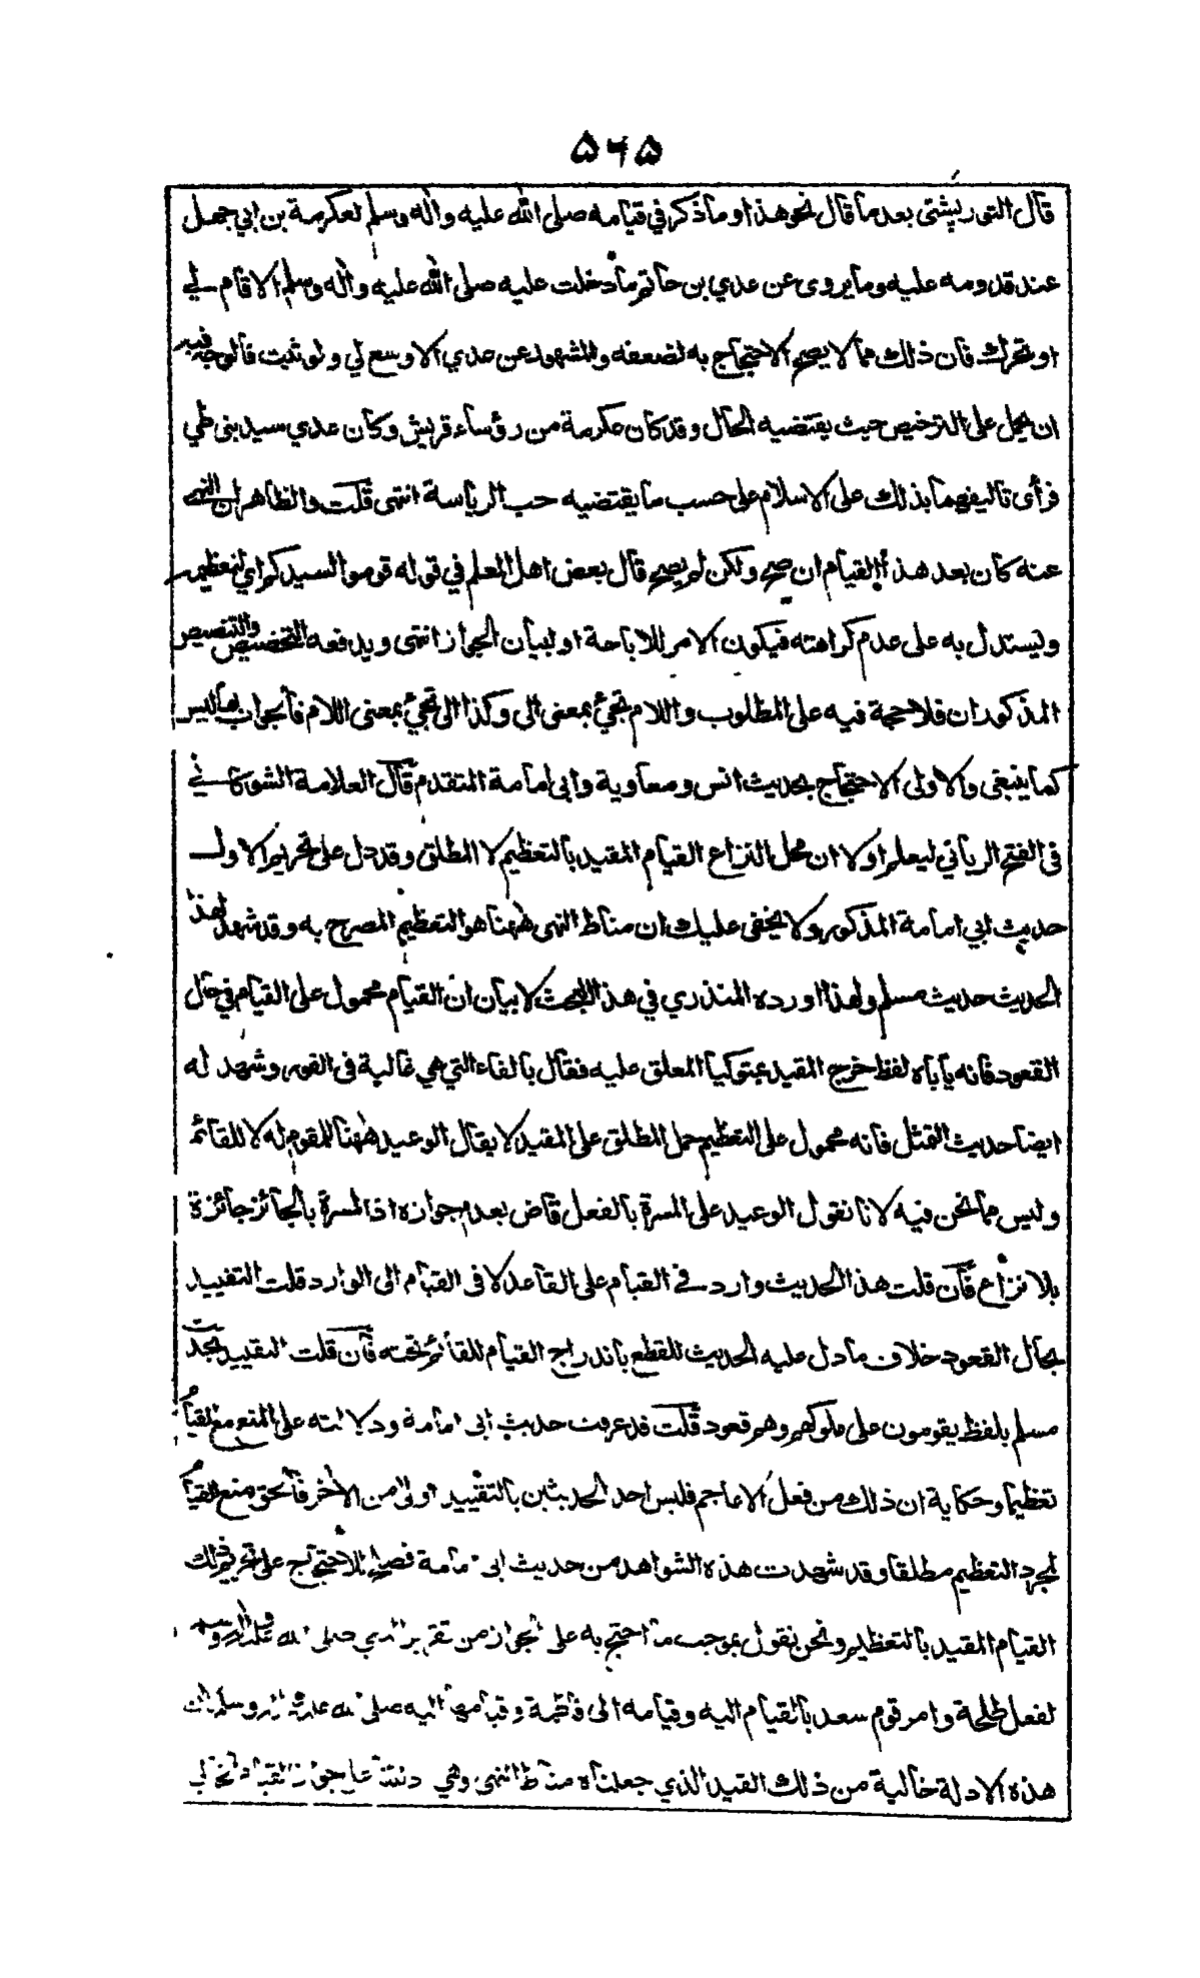 ۵۶۵
قال التوربشتي بعد ما قال نحو هذا وما ذكر في قيامه صلى الله عليه واله وسلم لعكرمة بن ابي جهل
عند قدومه عليه وما يروى عن عدي بن حاتم ما دخلت عليه صلى الله عليه واله وسلم الا قام لي
او تحرك فان ذلك مما لا يصح الاحتجاج به لضعفه والمشهور عن عدي الا وسع لي ولو ثبت فالوجه فيه
ان يحمل على الترخيص حيث يقتضيه الحال وقد كان عكرمة من رؤساء قريش وكان عدي سيد بنى طي
فرأى تاليفهما بذلك على الاسلام على حسب ما يقتضيه حب الرياسة انتهى قلت والظاهر ان النهي
عنه كان بعد هذا القيام ان صح ولكن لم يصح قال بعض اهل العلم في قوله قوموا لسيدكم اي لتعظيمه
وليستدل به على عدم كراهته فيكون الامر للاباحة او لبيان الجواز انتهى ويدفعه التخصيص والتنصيص
المذكوران فلا حجة فيه على المطلوب واللام تجيء بمعنى الى وكذا الى تجيء بمعنى اللام فالجواب بها ليس
كما ينبغي والاولى الاحتجاج بحديث انس ومعاوية وابي امامة المتقدم قال العلامة الشوكاني
في الفتح الرباني ليعلم اولا ان محل النزاع القيام المقيد بالتعظيم لا المطلق وقد دل على تحريم الاول
حديث ابي امامة المذكور ولا يخفى عليك ان مناط النهي ههنا هو التعظيم المصرح به وقد شهد لهذا
الحديث حديث مسلم ولهذا اورده المنذري في هذا البحث لا بيان ان القيام محمول على القيام في حال
القعود فانه ياباه لفظ خرج المقيد بمتوكيا المعلق عليه فقال بالفاء التي هي غالبة في الفور وشهد له
ايضا حديث التمثل فانه محمول على التعظيم حمل المطلق على المقيد لا يقال الوعيد ههنا للمقوم له لا للقائم
وليس مما نحن فيه لانا نقول الوعيد على المسرة بالفعل قاض بعدم جوازه اذ المسرة بالجائز جائزة
بلا نزاع فان قلت هذا الحديث وارد في القيام على القاعد لا في القيام الى الوارد قلت التقييد
بحال القعود خلاف ما دل عليه الحديث للقطع باندراج القيام للقائم تحته فان قلت التقييد بحديث
مسلم بلفظ يقومون على ملوكهم وهم قعود قلت قد عرفت حديث ابي امامة ودلالته على المنع من القيام
تعظيما وحكاية ان ذلك من فعل الاعاجم فليس احد الحديثين بالتقييد اولى من الآخر فالحق منع القيام
لمجرد التعظيم مطلقا وقد شهدت هذه الشواهد من حديث ابي امامة فصلح للاحتجاج على تحريم ذلك
القيام المقيد بالتعظيم ونحن نقول بموجب ما احتج به على الجواز من تقرير النبي صلى الله عليه واله وسلم
لفعل طلحة وامر قوم سعد بالقيام اليه وقيامه الى فاطمة وقيامها اليه صلى الله عليه واله وسلم لان
هذه الادلة خالية من ذلك القيد الذي جعلناه مناط النهي وهي دالة على جواز القيام الخالي